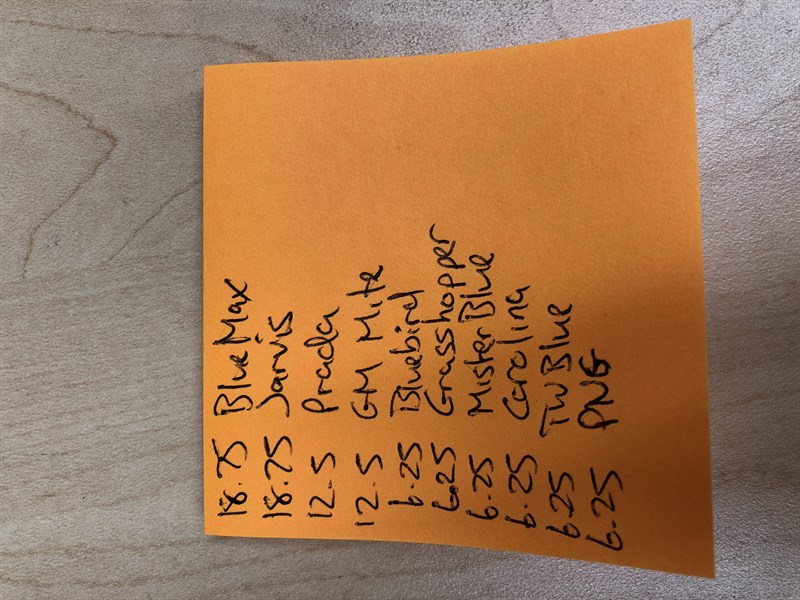 18.75 Blue Max
18.75 Jarvis
12.5 Prada
12.5 GM Mite
6.25 Bluebird
6.25 Grasshopper
6.25 Mister Blue
6.25 Carolina
6.25 TW Blue
6.25 PNG